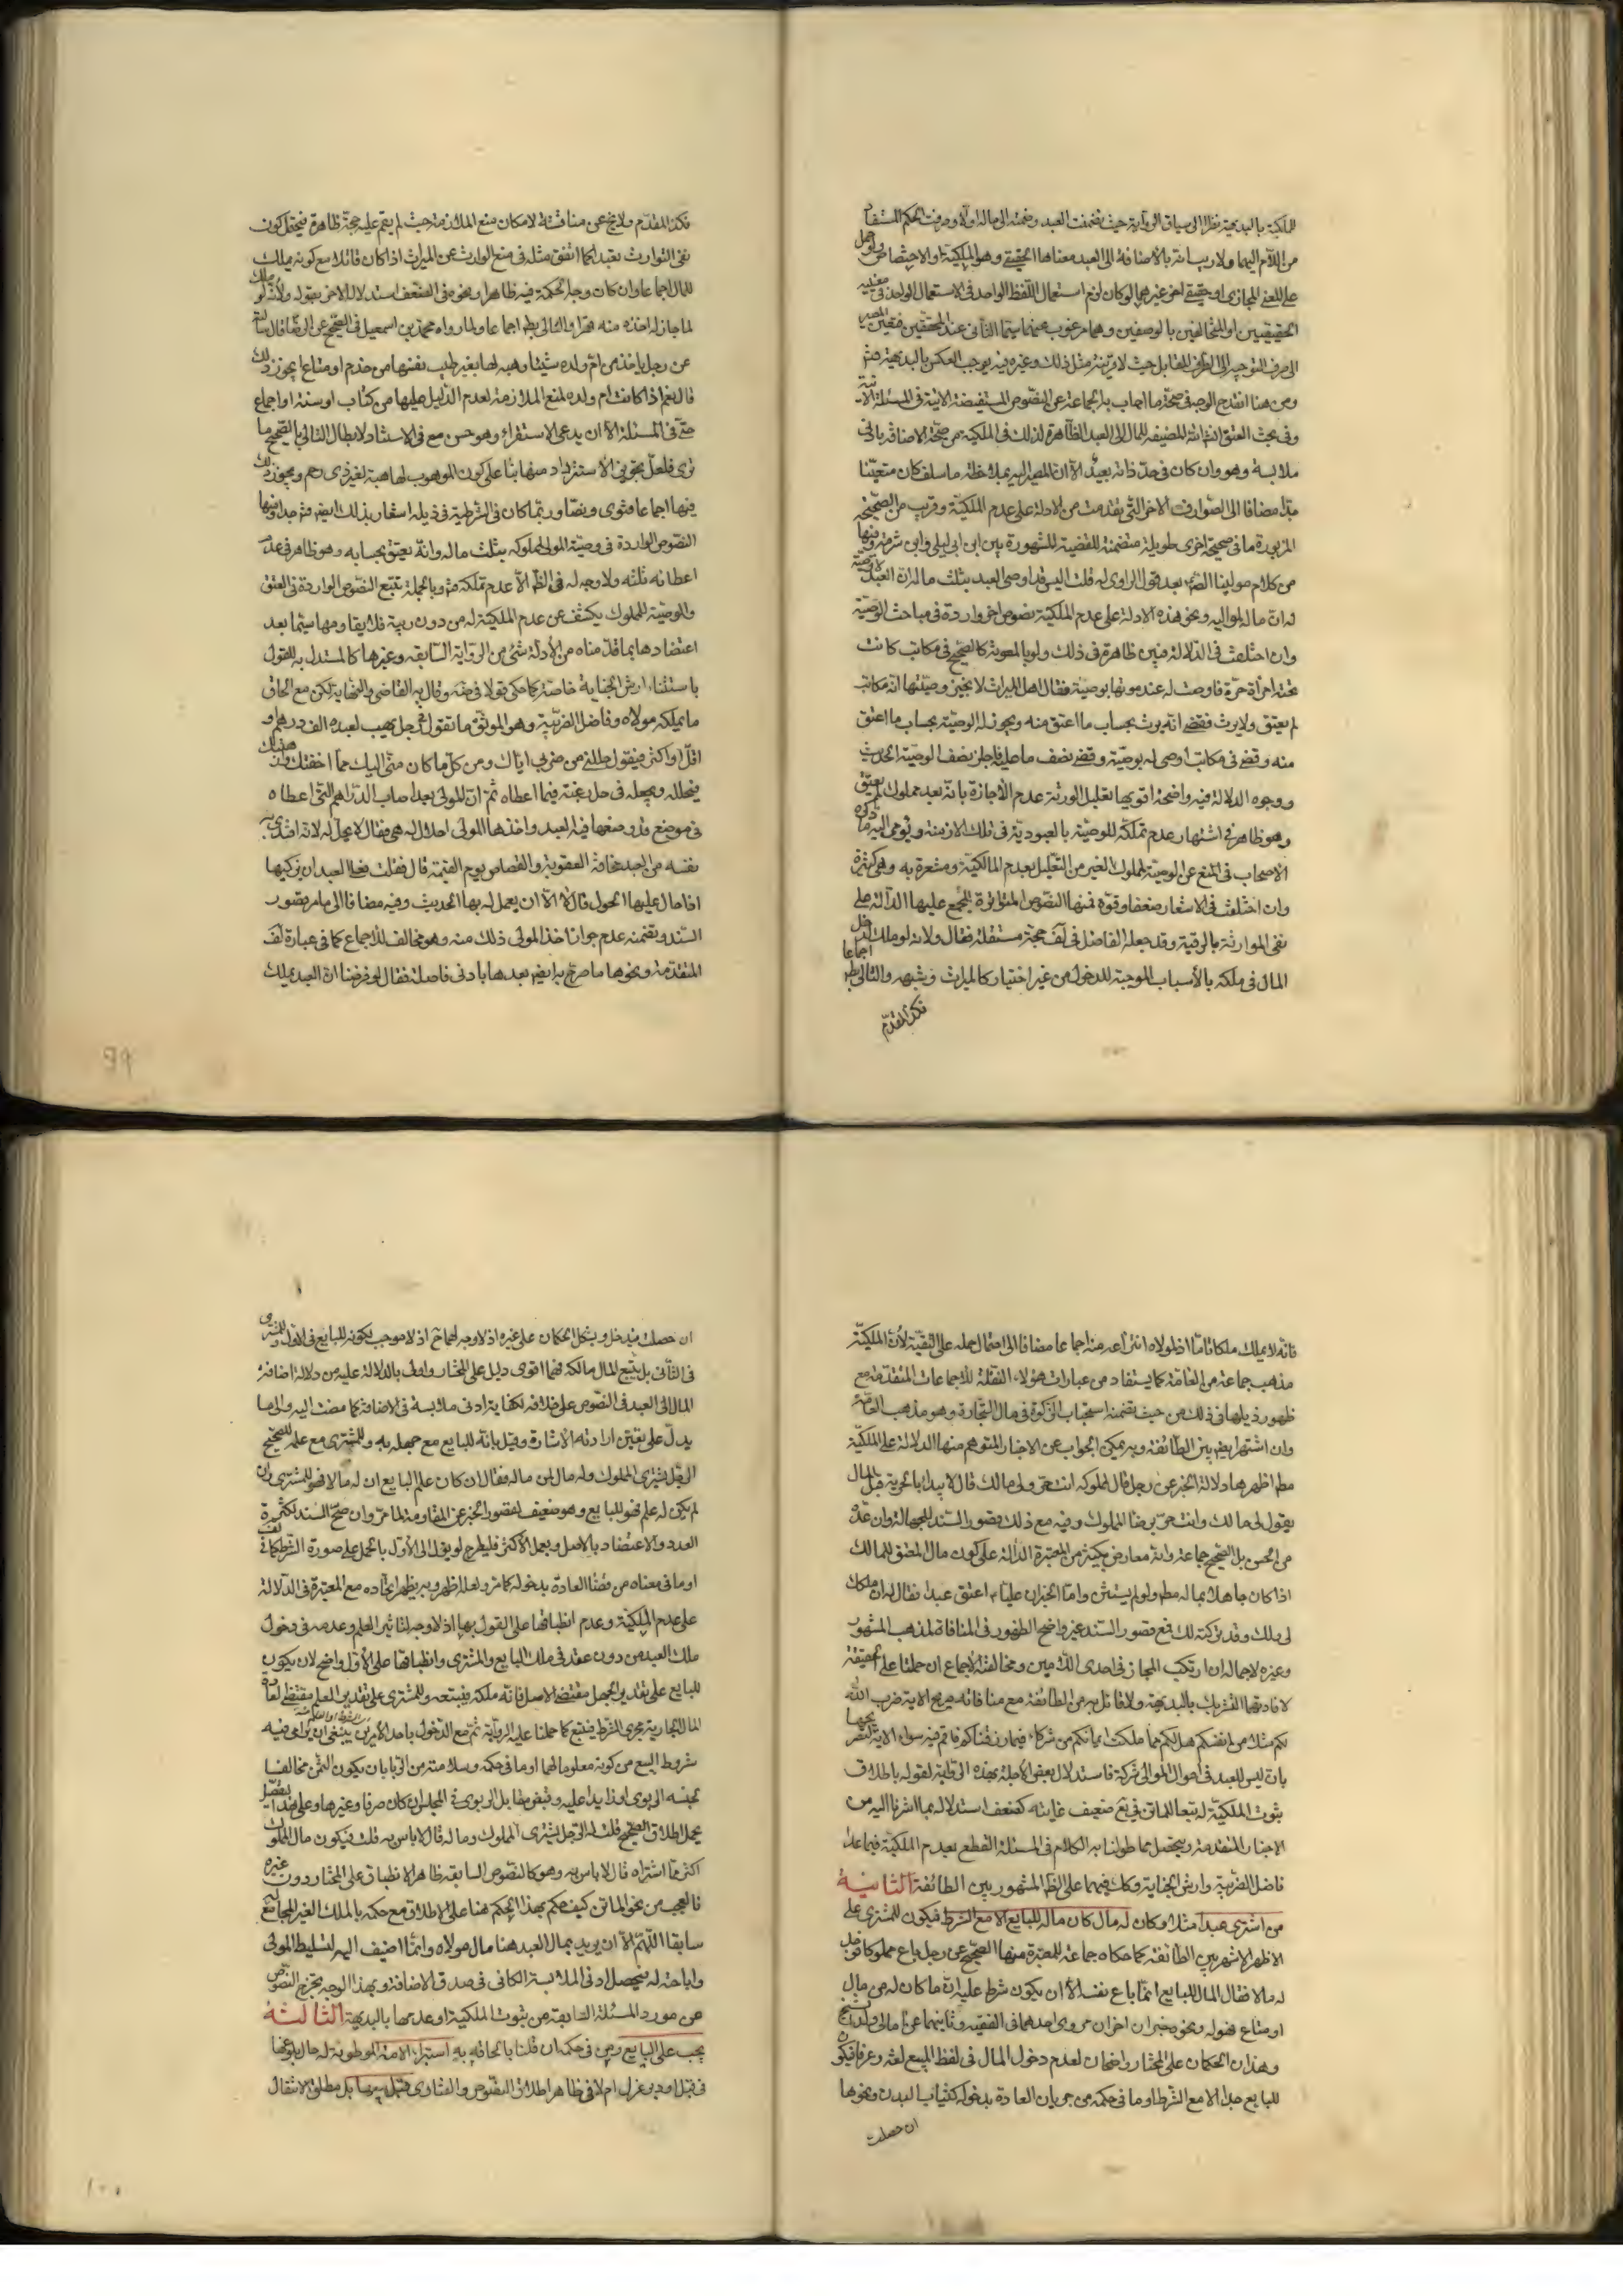 للملكية بالبديهة نظرا الى سياق الرواية حيث تضمنت العبد وضمنه الى ماله اولا وصرفت الحكم المستفاد
من اللام اليهما ولا ريب انه بالاضافة الى العبد معناها الحقيقي وهو الملكية او الاختصاص ولو حمل
على المعنى المجازي او حقيقي اخر غيرهما لو كان لزم استعمال اللفظ الواحد في الاستعمال الواحد في معنييه
الحقيقيين او المتخالفين بالوصفين وهما مرغوب عنهما سيما الثاني عند المحققين فتعين المصير
الى صرف التوجيه الى الطرف المقابل حيث لا قرينة مثل ذلك وغيره فيه يوجب العكس بالبديهة هذا
ومن هنا انقدح الوجه في صحة ما اجاب به الجماعة عن النصوص المستفيضة الاتية في المسئلة الاتية
وفي بحث العتق انشاء الله المضيفة للمال الى العبد الظاهرة لذلك في الملكية من صحة الاضافة بادنى
ملابسة وهو وان كان في حد ذاته بعيدا الا ان المصير اليه بملاحظة ما سلف كان متعينا
مضافا الى الصوارف الاخر التي تقدمت من الادلة على عدم الملكية وقريب من الصحيحة
المزبورة ما في صحيحة اخرى طويلة متضمنة للقضية المشهورة بين ابن ابي ليلى وابن شبرمة وفيها
من كلام مولينا الصادق بعد قول الراوي له قلت اليس قد اوصى للعبد بثلث ماله ان العبد لا وصية
له ان ماله لمواليه ونحو هذه الادلة على عدم الملكية نصوص اخر واردة في مباحث الوصية
وان اختلفت في الدلالة فبين ظاهرة في ذلك ولو بالمعونة كالصحيح في مكاتب كانت
تحته امرأة حرة فاوصت له عند موتها بوصية فقال اهل الميراث لا يجيز وصيتها انه مكاتب
لم يعتق ولا يرث فقضى انه يرث بحساب ما اعتق منه ويجوز له الوصية بحساب ما اعتق
منه وقضى في مكاتب اوصى له بوصية وقد قضى نصف ما عليه فاجاز نصف الوصية الحديث
ووجوه الدلالة فيه واضحة اقويها تعليل الورثة عدم الاجازة بانه بعد مملوك لم يعتق
وهو ظاهر في اشتهار عدم تملكه للوصية بالعبودية في تلك الازمنة ويومي اليه ما ذكره
الاصحاب في المنع عن الوصية لمملوك الغير من التعليل بعدم المالكية ومشعرة به وهي كثيرة
وان اختلفت في الاشعار ضعفا وقوة فمنها النصوص المتواترة المجمع عليها الدالة على
نفي الموارثة بالرقية وقد جعله الفاضل في لف حجة مستقلة فقال ولانه لو ملك لدخل
المال في ملكه بالاسباب الموجبة للدخول من غير اختيار كالميراث وشبهه والتالي بط اجماعا
فكذا المقدم
فكذا المقدم ولا يخ عن مناقشة لامكان منع الملازمة حيث لم يقم عليه حجة ظاهرة فيحتمل كون
نفي التوارث تعبدا كما اتفق مثله في منع الوارث عن الميراث اذا كان قاتلا مع كونه يملك
المال اجماعا وان كان وجه الحكمة فيه ظاهرا ونحوه في الضعف استدلاله الاخر بقوله ولانه لو ملك
لما جاز له اخذه منه قهرا والتالي بط اجماعا ولما رواه محمد بن اسمعيل في الصحيح عن الرضا قال سالته
عن رجل ياخذ من ام ولده شيئا وهبه لها بغير طيب نفسها من خدم او متاع ايجوز ذلك
قال نعم اذا كانت ام ولده لمنع الملازمة لعدم الدليل عليها من كتاب او سنة او اجماع
حتى في المسئلة الا ان يدعى الاستقراء وهو حسن مع في الاستناد لابطال التالي بالصحيح ما
ترى فلعل تجويز الاسترداد منها بناء على كون الموهوب لها هبة لغير ذي رحم ويجوز ذلك
فيها اجماعا فتوى ونصا وربما كان في الشرطية في ذيله اشعار بذلك ايضا فتد جدا ومنها
النصوص الواردة في وصية المولى لمملوكه بثلث ماله وانه يعتق بحسابه وهو ظاهر في عدم
اعطائه ثلثه ولا وجه له في الظ الا عدم تملكه هذا وبالجملة تتبع النصوص الواردة في العتق
والوصية للمملوك يكشف عن عدم الملكية له من دون ريبة فلا يقاومها سيما بعد
اعتضادها بما قدمناه من الادلة شئ من الرواية السابقة وغيرها كالمستدل به للقول
باستثناء ارش الجناية خاصة كما حكي قولا في ضه وقال به القاضي والنهاية لكن مع الحاق
ما يملكه مولاه وفاضل الضريبة وهو الموثق ما تقول في رجل يهب لعبده الف درهم او
اقل او اكثر فيقول حللني من ضربي اياك ومن كل ما كان مني اليك مما اخفتك وارهبتك
فيحلله ويجعله في حل رغبة فيما اعطاه ثم ان المولى بعد اصاب الدراهم التي اعطاه
في موضع قد وضعها فيه العبد واخذها المولى احلال له هي فقال لا يحل له لانه افتدى به
نفسه من العبد مخافة العقوبة والقصاص يوم القيمة قال فقلت فعلى العبد ان يزكيها
اذا حال عليها الحول قال لا الا ان يعمل له بها الحديث وفيه مضافا الى ما مر قصور
السند وتضمنه عدم جواز اخذ المولى ذلك منه وهو مخالف للاجماع كما في عبارة لف
المتقدمة ونحوها ما صرح به ايضا بعدها بادنى فاصلة فقال لو فرضنا ان العبد يملك
99
فانه لا يملك ملكا تاما اذ لمولاه انتزاعه منه اجماعا مضافا الى احتمال حمله على التقية لان الملكية
مذهب جماعة من العامة كما يستفاد من عبارات هؤلاء النقلة للاجماعات المتقدمة مع
ظهور ذيلها في ذلك من حيث تضمنه استحباب الزكوة في مال التجارة وهو مذهب العامة
وان اشتهر ايضا بين الطائفة وبه يمكن الجواب عن الاخبار المتوهم منها الدلالة على الملكية
مط اظهرها دلالة الخبر عن رجل قال لمملوكه انت حر ولي مالك قال لا يبدا بالحرية قبل المال
يقول لي مالك وانت حر برضا المملوك وفيه مع ذلك قصور السند للجهالة وان عده
من الحسن بل الصحيح جماعة وانه معارض بكثير من المعتبرة الدالة على كون مال المعتق للمالك
اذا كان جاهلا بماله مط ولو لم يستثن واما الخبر ان عليا اعتق عبدا فقال له ان ملكك
لي ملك وقد تركته لك فمع قصور السند غير واضح الظهور في المنافاة لمذهب المشهور
وغيره لاجماله ان ارتكب المجاز في احدى اللامين ومخالفته الاجماع ان حملتا على الحقيقة
لافادتهما التشريك بالبديهة ولا قائل به من الطائفة مع منافاته صريح الاية ضرب الله
لكم مثلا من انفسكم هل لكم مما ملكت ايمانكم من شركاء فيما رزقناكم فانتم فيه سواء الاية لتصريحها
بان ليس للعبد في اموال الموالي شركة فاستدلال بعض الاجلة بهذه الرواية لقوله باطلاق
ثبوت الملكية له تبعا للماتن في يع ضعيف غايته كضعف استدلاله بما اشرنا اليه من
الاخبار المتقدمة ويتحصل مما طولنا به الكلام في المسئلة القطع بعدم الملكية فيما عدا
فاضل الضريبة وارش الجناية وكك فيهما على الظ المشهور بين الطائفة الثانية
من اشترى عبدا مثلا وكان له مال كان ماله للبايع الا مع الشرط فيكون للمشتري على
الاظهر الاشهر بين الطائفة كما حكاه جماعة للمعتبرة منها الصحيح عن رجل باع مملوكا فوجد
له مالا فقال المال للبايع انما باع نفسه الا ان يكون شرط عليه ان ما كان له من مال
او متاع فهو له ونحوه خبران اخران مروي احدهما في الفقيه وثانيهما عن امالي ولد الشيخ
وهذان الحكمان على المختار واضحان لعدم دخول المال في لفظ المبيع لغة وعرفا فيكون
للبايع جدا الا مع الشرط او ما في حكمه من جريان العادة بدخوله كثياب البدن ونحوها
ان حصلت
ان حصلت فيدخل ويشكل الحكمان على غيره اذ لا وجه لهما ح اذ لا موجب لكونه للبايع في الاول وللمشتري
في الثاني بل يتبع المال مالكه فهما اقوى دليل على المختار واولى بالدلالة عليه من دلالة اضافة
المال الى العبد في النصوص على خلافه لكفاية ادنى ملابسة في الاضافة كما مضت اليه والى ما
يدل على تعين ارادته الاشارة وقيل بانه للبايع مع جهله به وللمشتري مع علمه للصحيح
الرجل يشتري المملوك وله مال لمن ماله فقال ان كان علم البايع ان له مالا فهو للمشتري وان
لم يكن له علم فهو للبايع وهو ضعيف لقصور الخبر عن المقاومة لما مر وان صح السند لكثرة
العدد والاعتضاد بالاصل وعمل الاكثر فليطرح او يؤول الى الاول بالحمل على صورة الشرط كما في لف
او ما في معناه من قضاء العادة بدخوله كما مر ولعله اظهر وبه يظهر اتحاده مع المعتبرة في الدلالة
على عدم الملكية وعدم انطباقها على القول بها اذ لا وجه لتاثير العلم وعدمه في دخول
ملك العبد من دون عقد في ملك البايع والمشتري وانطباقها على الاول واضح لان يكون
للبايع على تقدير الجهل مقتضى الاصل فانه ملكه فيتبعه وللمشتري على تقدير العلم مقتضى العادة
الجارية مجرى الشرط فيتبع كما حملنا عليه الرواية ثم مع الدخول باحد الامرين ينبغي ان يراعى فيه
شروط البيع من كونه معلوما لهما او ما في حكمه وسلامته من الربا بان يكون الثمن مخالفا
لجنسه الربوي او زايدا عليه وقبض مقابل الربوي في المجلس ان كان صرفا وغيرها وعلى هذا التفصيل
يحمل اطلاق الصحيح قلت له الرجل يشتري المملوك وماله قال لا باس به قلت فيكون مال المملوك
اكثر مما اشتراه قال لا باس به وهو كالنصوص السابقة ظاهر الانطباق على المختار دون غيره
فالعجب من نحو الماتن كيف حكم بهذا الحكم هنا على الاطلاق مع حكمه بالملك الغير المجامع له
سابقا اللهم الا ان يريد بمال العبد هنا مال مولاه وانما اضيف اليه لتسليط المولى
واباحته له فيحصل ادنى الملابسة الكافي في صدق الاضافة وبهذا الوجه يخرج النصوص
عن مورد المسئلة السابقة من ثبوت الملكية او عدمها بالبديهة الثالثة
يجب على البايع ومن في حكمه ان قلنا بالحاقه به استبراء الامة الموطوئة له حال بلوغها
في قبل او دبر عزل ام لا في ظاهر اطلاق النصوص والفتاوى قبل بيعها بل مطلق الانتقال
١٠٠